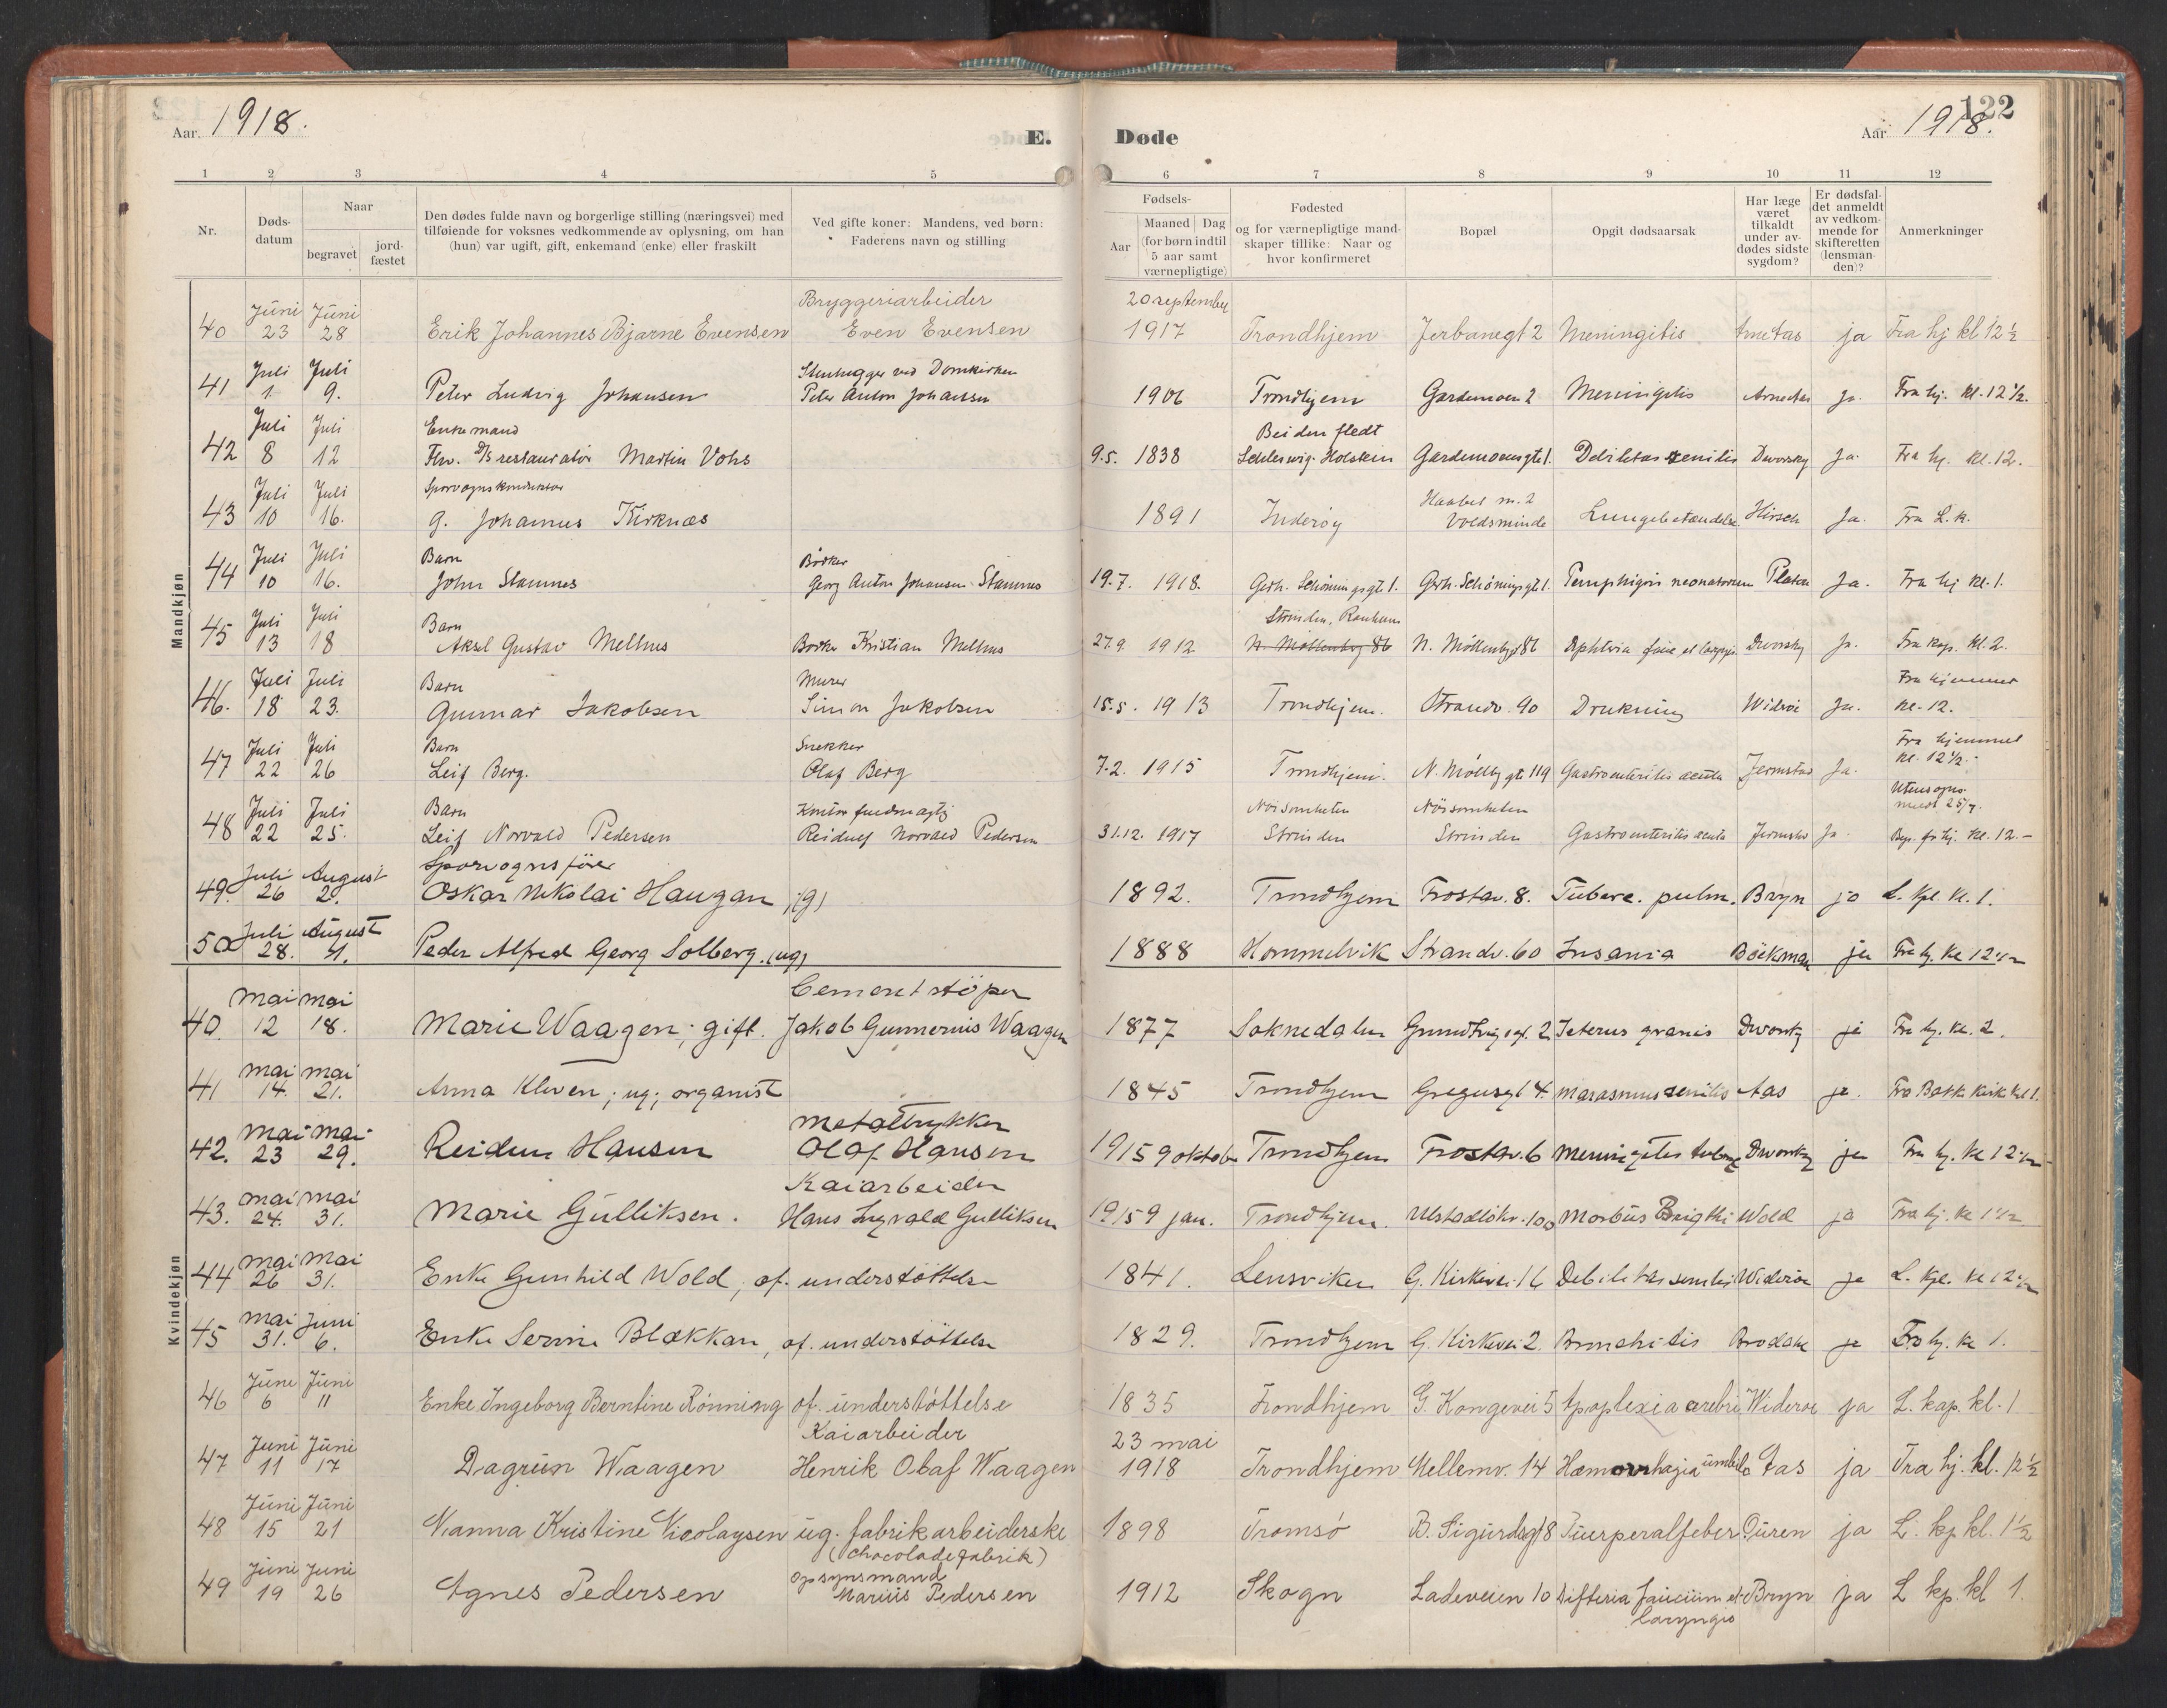 Aar. 1918.
E. Døde
122
Aar 1918.
1 2 3 4 5 6 7 8 9 10 11 12
Nr.
Døds-
datum
Naar
begravet
jord-
fæstet
Den dødes fulde navn og borgerlige stilling (næringsvei) med
tilføiende for voksnes vedkommende av oplysning, om han
(hun) var ugift, gift, enkemand (enke) eller fraskilt
Ved gifte koner: Mandens, ved børn:
Faderens navn og stilling
Fødsels-
Aar
Maaned Dag
(for børn indtil
5 aar samt
værnepligtige)
Fødested
og for værnepligtige mand-
skaper tillike: Naar og
hvor konfirmeret
Bopæl
Opgit dødsaarsak
Har læge
været
tilkaldt
under av-
dødes sidste
sygdom?
Er dødsfal-
det anmeldt
av vedkom-
mende for
skifteretten
(lensman-
den)?
Anmerkninger
Mandkjøn
Juni Juni Bryggeriarbeider 20 september
40 23 28 Erik Johannes Bjarne Evensen Even Evensen 1917 Trondhjem Jerbanegt 2 Meningitis Arnetas ja Fra hj kl 12 ½
Juli Juli Stenhugger ved Domkirken
41 1 9. Peter Ludvig Johansen Peter Anton Johansen 1906 Trondhjem Gardemoen 2 Meningitis Arnetas Ja. Fra hj. kl. 12 ½.
Juli Juli Enkemand Beidenfledt
42 8 12 Fhv. D/S restauratør Martin Vohs 9.5. 1838 Schleswig-Holstein Gardemoensgte 1. Debilitas senilis Dworsky Ja. Fra hj. kl. 12.
Juli Juli Sporvognskonduktør Haabet m. 2
43 10 16. G. Johannes Kirknæs 1891 Inderøy Voldsminde Lungebetændelse Hirsch Ja. Fra L. k.
Juli Juli Barn Bødker
44 10 16. John Stamnes Georg Anton Johansen Stamnes 19.7. 1918. Gerh. Schøningsgt 1. Gerh. Schøningsgt 1. Pemphigus neonatorum Platou Ja. Fra hj kl. 1.
Juli Juli Barn Strinden, Ranheim
45 13 18 Aksel Gustav Melhus Bødker Kristian Melhus 27.9. 1912 N. Møllenbg 86 N. Møllenbg 86 Diphteria Dworsky Ja. Fra kap. kl. 2.
Juli Juli Barn Murer Fra hjemmet
46. 18 23. Gunnar Jakobsen Simon Jakobsen 15.5. 1913 Trondhjem. Strandv. 90 Drukning Widrøe Ja. kl. 12.
Juli Juli Barn Snekker Fra hjemmet
47 22 26 Leif Berg. Olaf Berg 7.2. 1915 Trondhjem. N. Møllbg gt 119 Gastroenteritis acuta Jermstad Ja. kl. 12 ½.
Juli Juli Barn Kontorfuldmægtig Nøisomheten Nøisomheten Utensogns
meldt 25/7.
48 22 25. Leif Norvald Pedersen Reidulf Norvald Pedersen 31.12. 1917 Strinden Strinden Gastroenteritis acuta Jermstad Ja. Beg. fr hj. kl. 12.-
Juli August Sporvognsfører
49. 26 2. Oskar Nikolai Haugan (g) 1892. Trondhjem Frostav. 8. Tuberc. pulm. Bryn ja L. kpl. kl. 1.
Juli August
50 28. 4. Peder Alfred Georg Solberg. (ug) 1888 Hommelvik Strandv. 60 Insania Böckman ja Fra hj. kl 12 ½
Kvindekjøn
mai mai Cementstöper
40. 12 18. Marie Waagen; gift. Jakob Gunnerius Waagen 1877 Soknedalen Grundtvigsgt. 2 Icterus gravis Dworsky ja Fra hj. kl. 2.
mai mai
41 14. 21. Anna Kleven; ug; organist 1845 Trondhjem Gregusgt 4. Marasmus senilis Aas ja. Fra Bakke kirke kl 1.
mai mai metaltrykker
42. 23 29. Reidun Hansen Olaf Hansen 1915 9 oktober Trondhjem Frostav. 6 Meningitis Dworsky ja Fra hj. kl 12 ½
mai mai Kaiarbeider
43. 24. 31. Marie Gulliksen. Hans Ingvald Gulliksen 1915 9 jan. Trondhjem. Ulstadløkv. 100 Morbus Brigthi Wold ja Fra hj. kl 1 ½
mai mai
44 26 31. Enke Gunhild Wold, of. understöttelse 1841. Lensviken G. Kirkevei 16 Debilitas senilis Widerøe ja L. kpl. kl 12 ½
mai juni
45 31. 6. Enke Serine Blækkan, of. understöttelse 1829. Trondhjem G. Kirkevei 2. Bronchitis Brodahl ja Fra hj. kl 1.
Juni Juni
46 6 11 Enke Ingeborg Berntine Rönning of. understöttelse 1835 Trondhjem G. Kongevei 5 Apoplexia cerebri Widerøe ja L. kap. kl. 1
Juni Juni Kaiarbeider 23 mai
47 11 17 Dagrun Waagen Henrik Olaf Waagen 1918 Trondhjem Mellemv. 14 Hæmorrhagia umbilc Aas ja Fra hj. kl. 12 ½
Juni Juni
48 15 21 Nanna Kristine Nicolaysen ug. fabrikarbeiderske 1898 Tromsö B. Sigurdsgt 8 Puerperalfeber Duren ja L. kp. kl. 1 ½
(chocoladefabrik)
Juni Juni opsynsmand
49 19 26 Agnes Pedersen Marius Pedersen 1912 Skogn Ladeveien 10 Difteria faucium et Bryn ja L kp. kl 1.
laryngis